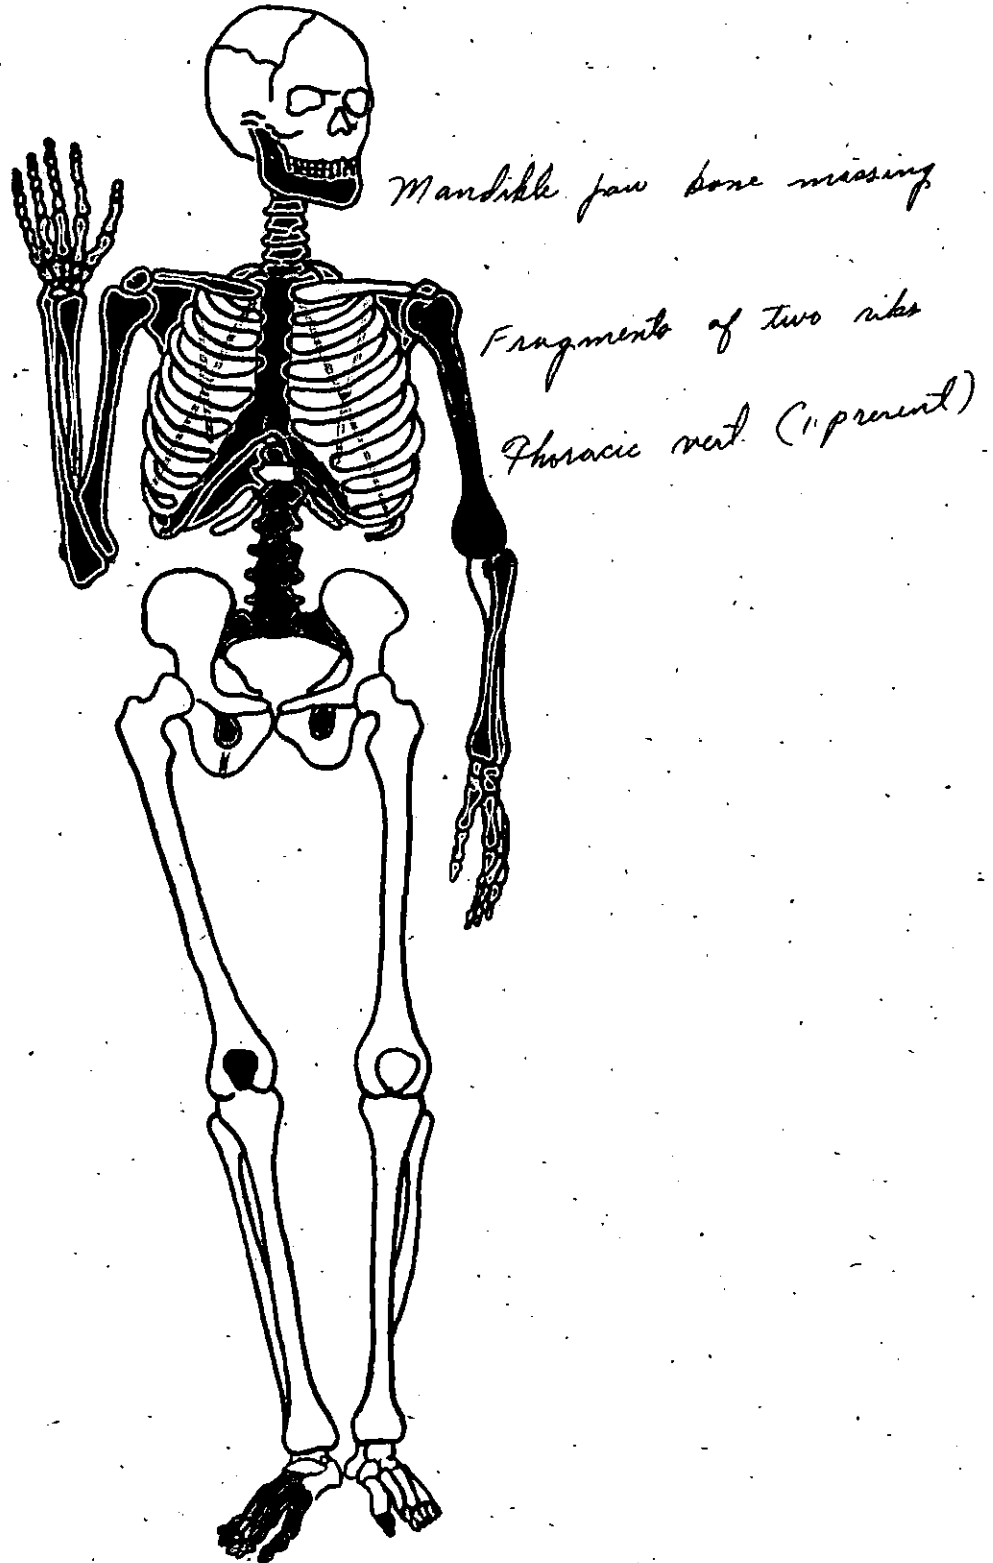 Mandible jaw bone missing
Fragments of two ribs
Thoracic vert. (11 present)